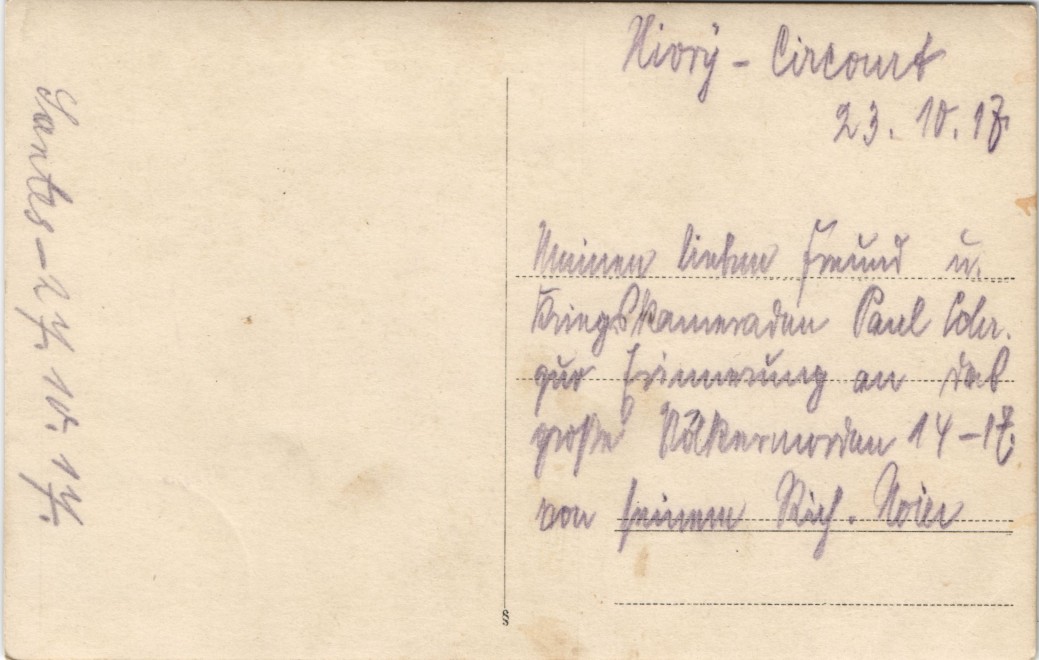 Nivry - Circourt
23. 10. 17.
Meinen lieben Freund u.
Kriegskameraden Paul
zur Erinnerung an das
große Völkermorden 14-17.
von seinem Rich.
Santes - 27. 10. 17.